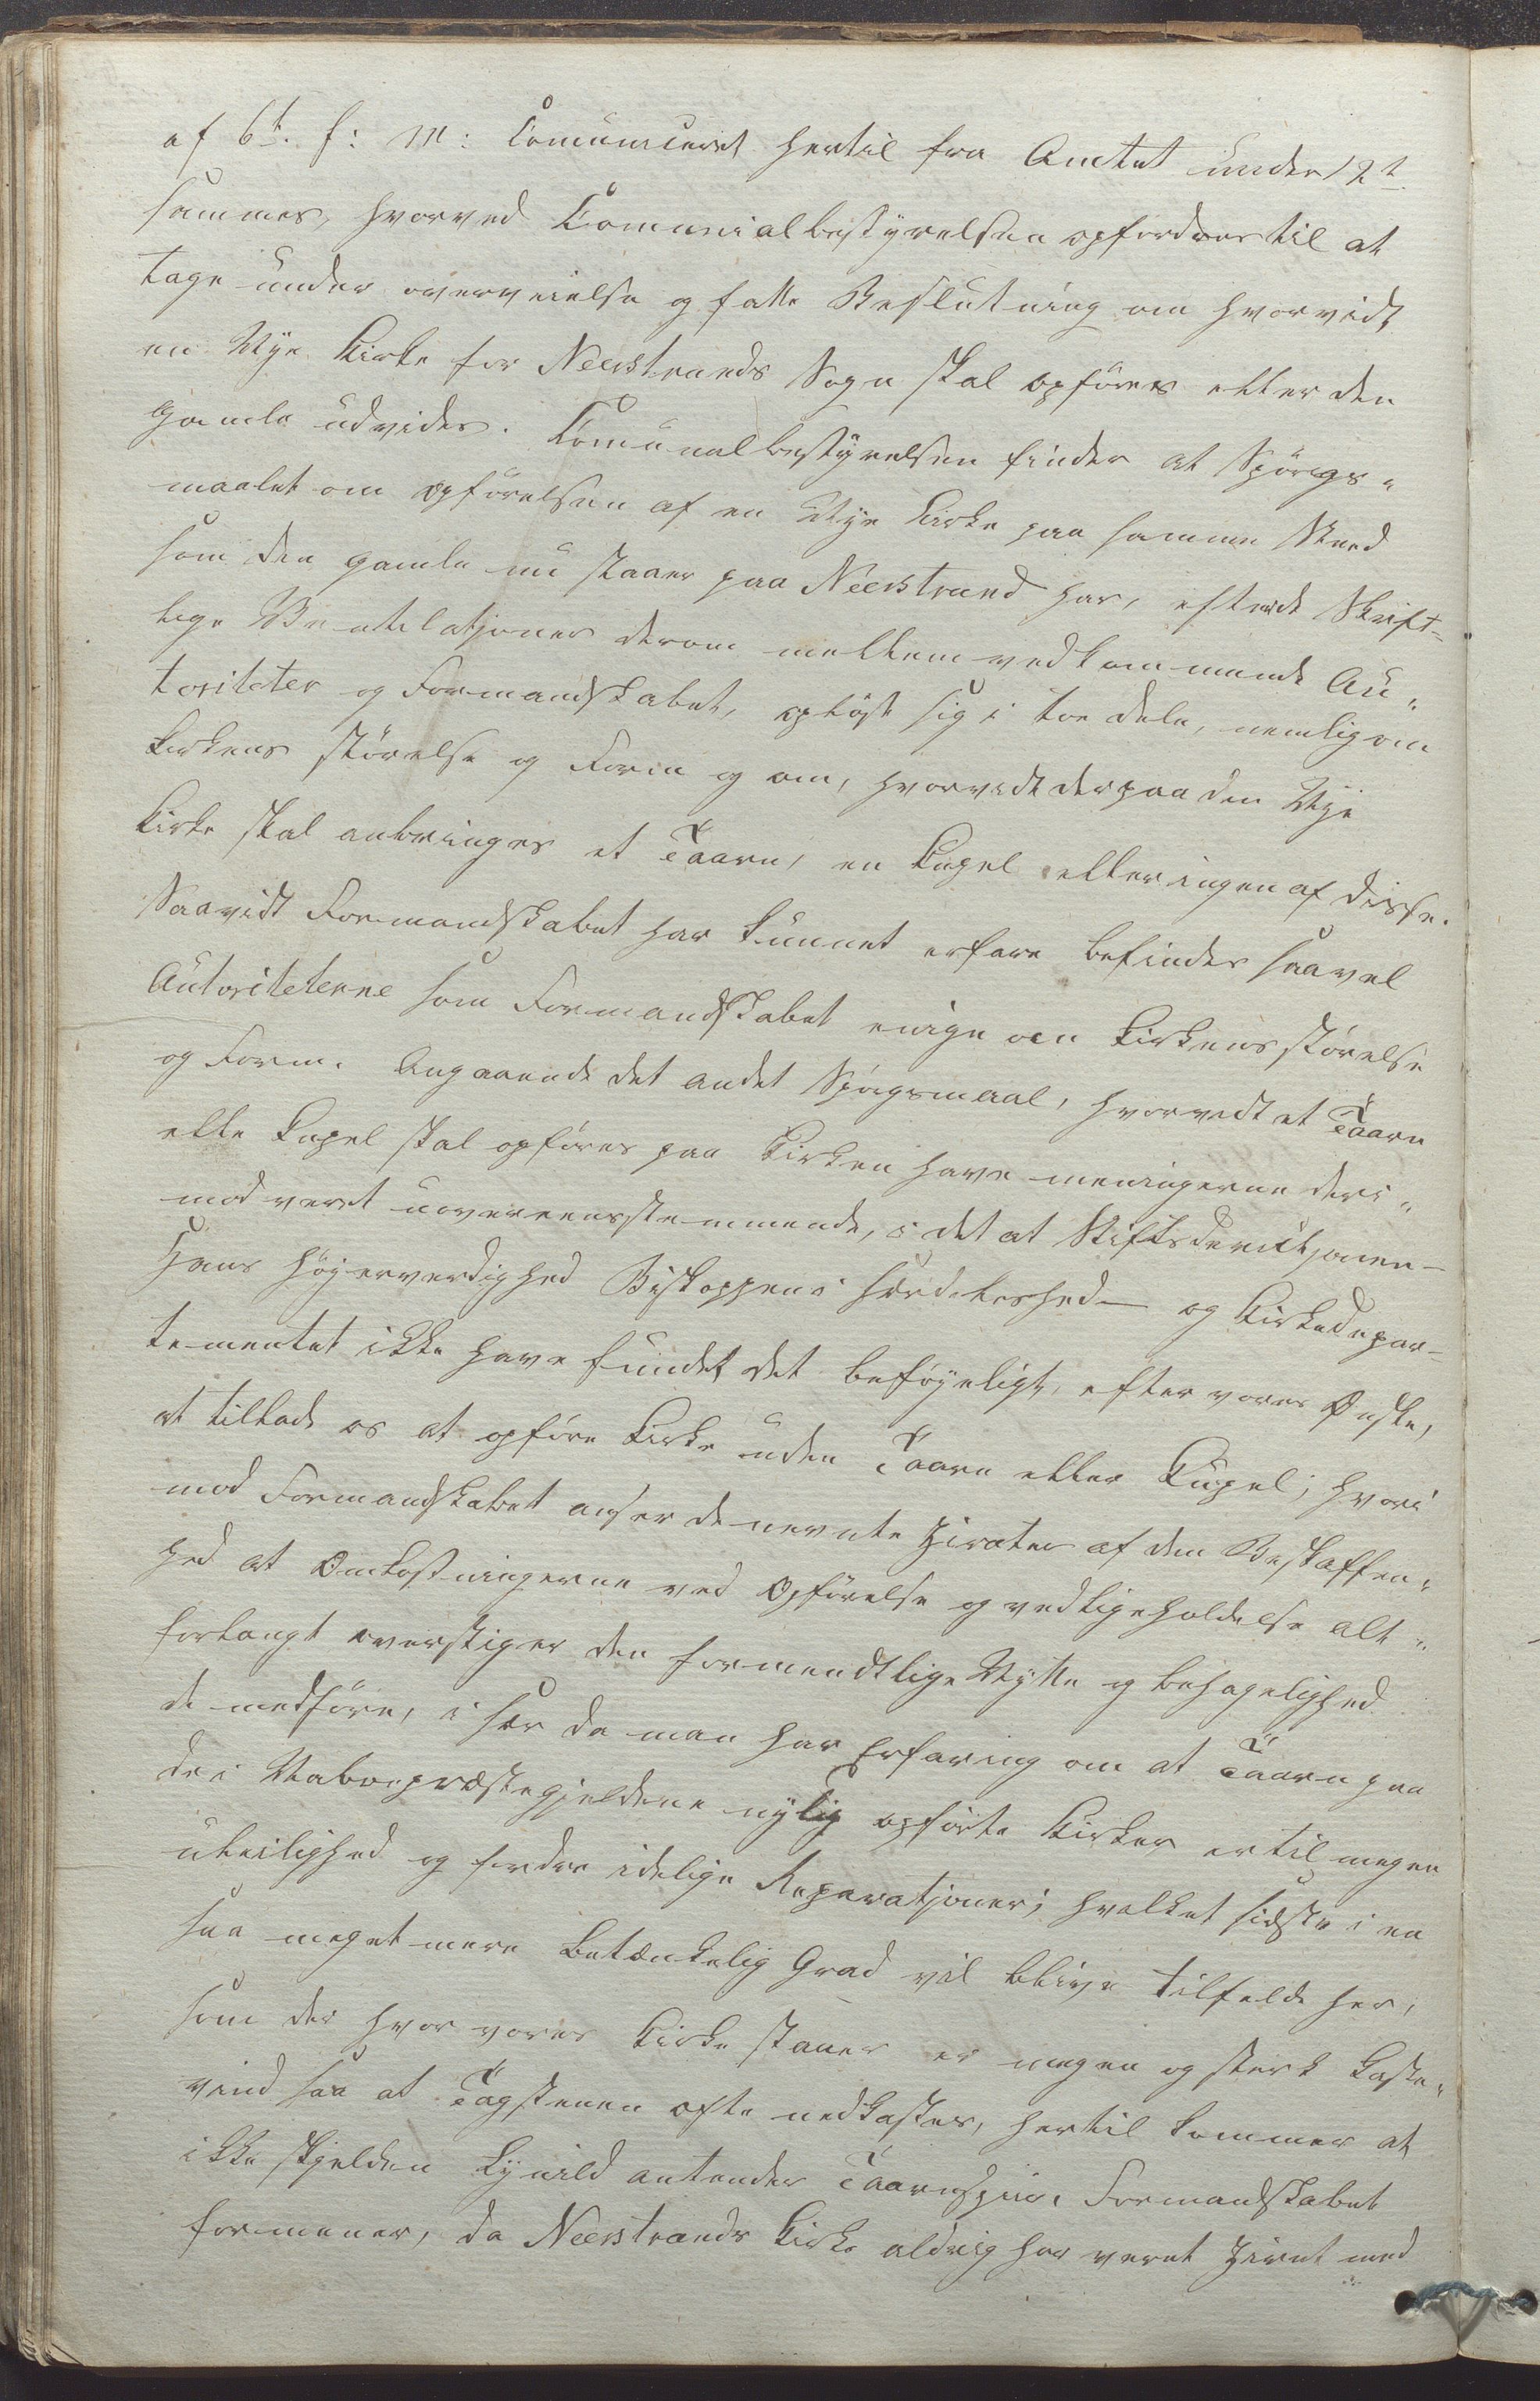 af 6t. f: M: Comuniceret hertil fra Amtet under 12t.
sammes, hvorved Comunialbestyrelsen opfordres til at
tage under overveielse og fatte Beslutning om hvorvidt
en Nye Kirke for Neerstrands Sogn skal opføres eller den
gamle udvides. Comunalbestyrelsen finder at Spørgs„
maalet om opførelsen af en Nye Kirke paa samme Sted
som den gamle nu staaer paa Neerstrand har, efter de Skrift-
lige Ventilatjoner derom mellem vedkommende Au„
toriteter og Formandskabet, opløst sig i toe dele, nemlig om
Kirkens størelse og Form og om, hvorvidt der paa den Nye
Kirke skal anbringes et Taarn, en Kupel eller ingen af disse.
Saavidt Formandskabet har kunnet erfare befindes saavel
Autoriteterne som Formandskabet enige om Kirkens størelse
og Form. Angaaende det andet Spørgsmaal, hvorvidt et Taarn
elle Kupel skal opføres paa Kirken have meningerne deri„
mod veret uovereensstemmende, i det at Stiftsdirecktjonen –
Hans Høyerverdighed Biskoppen i særdeleshed – og Kirkedepar-
tementet ikke have fundet det beføyeligt, efter vores Ønske,
at tillade os at opføre Kirke uden Taarn eller Kupel; hvori
mod Formandskabet anser de nevnte Zirater af den Beskaffen„
hed at Omkostningerne ved Opførelse og vedligeholdelse alt„
forlangt overstiger den formendtlige Nytte og behagelighed
de medføre, i sær da man har Erfaring om at Taarn paa
de i Naboepræstegjeldene nylig opførte Kirker er til megen
uleilighed og fordre idelige Reparatjoner; hvilket sidste i en
saa meget mere betænkelig Grad vil blive tilfelde her,
som der hvor vores Kirke staaer er megen og sterk Kaste„
vind saa at Tagstenen ofte nedkastes, hertil kommer at
ikke skjelden Lynild antender Taarnspiir. Formandskabet
formener, da Neerstrands Kirke aldrig har veret Ziret med